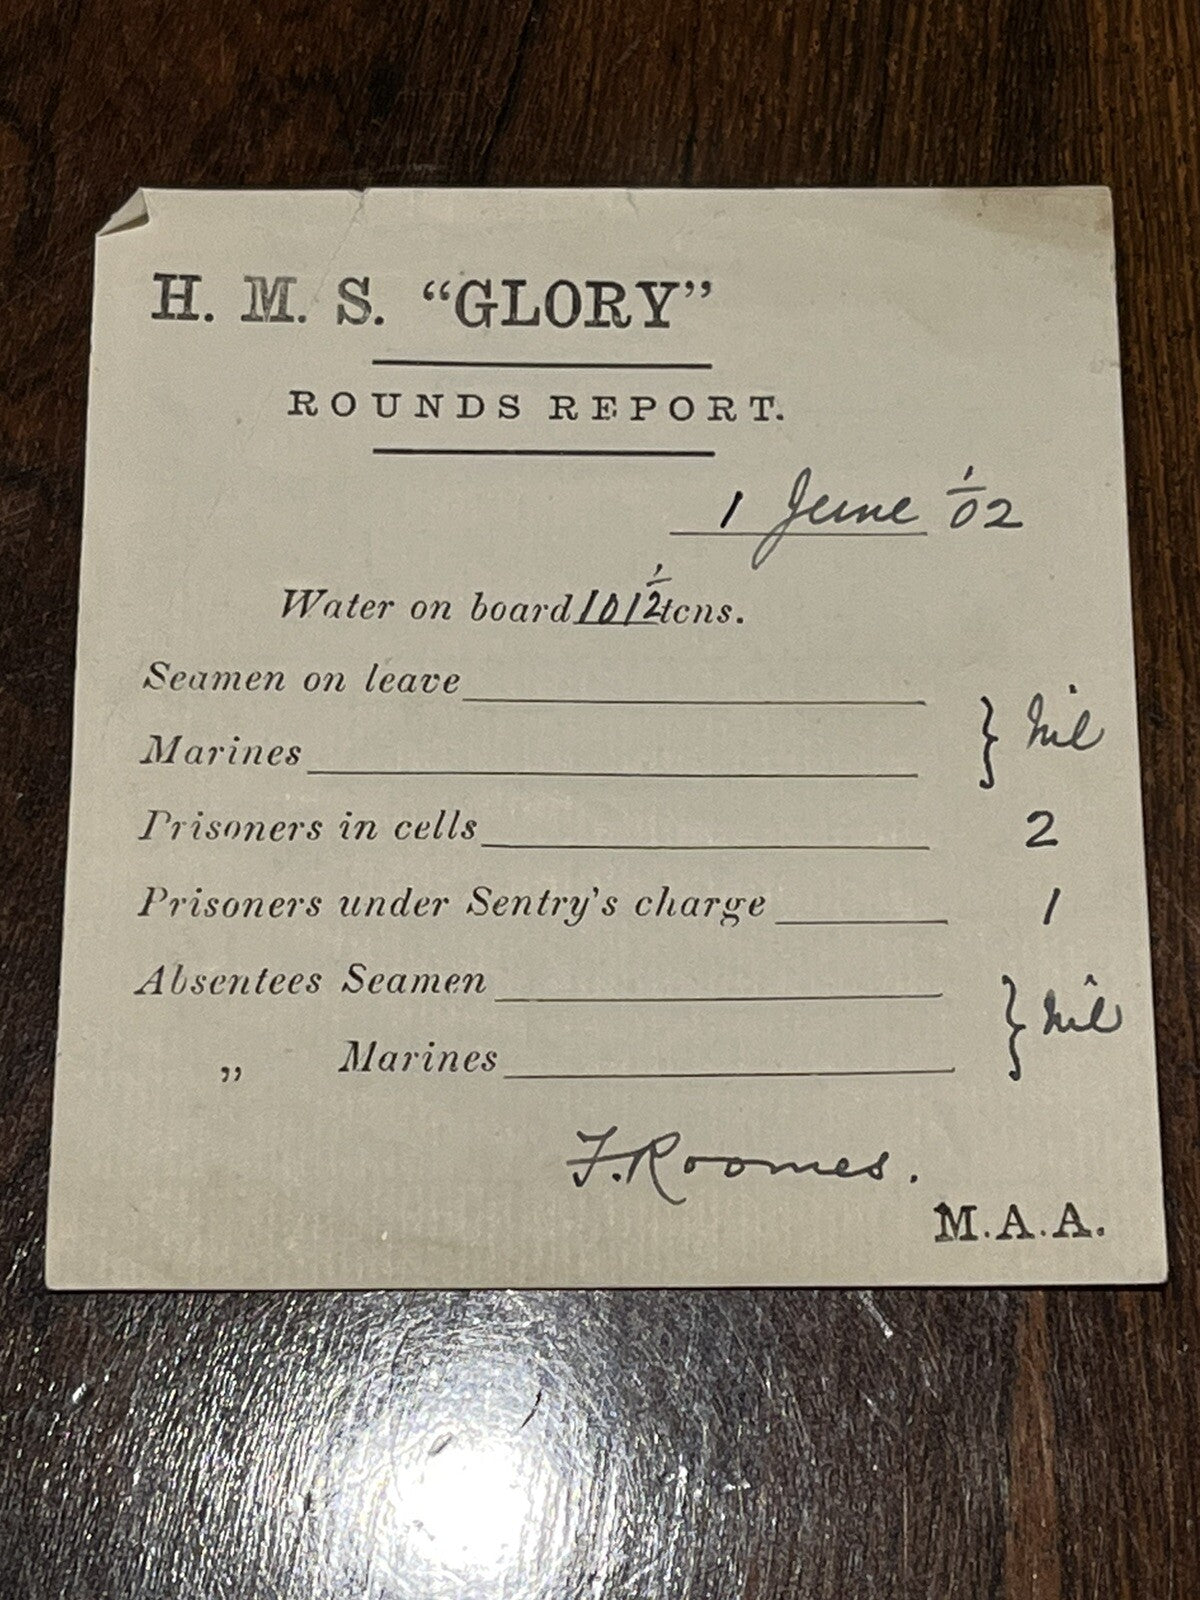 H. M. S. “GLORY”
ROUNDS REPORT.
1 June 1/02
Water on board 101 1/2 tons.
Seamen on leave
Marines } Nil
Prisoners in cells 2
Prisoners under Sentry's charge 1
Absentees Seamen
„ Marines } Nil
F. Roomes.
M.A.A.